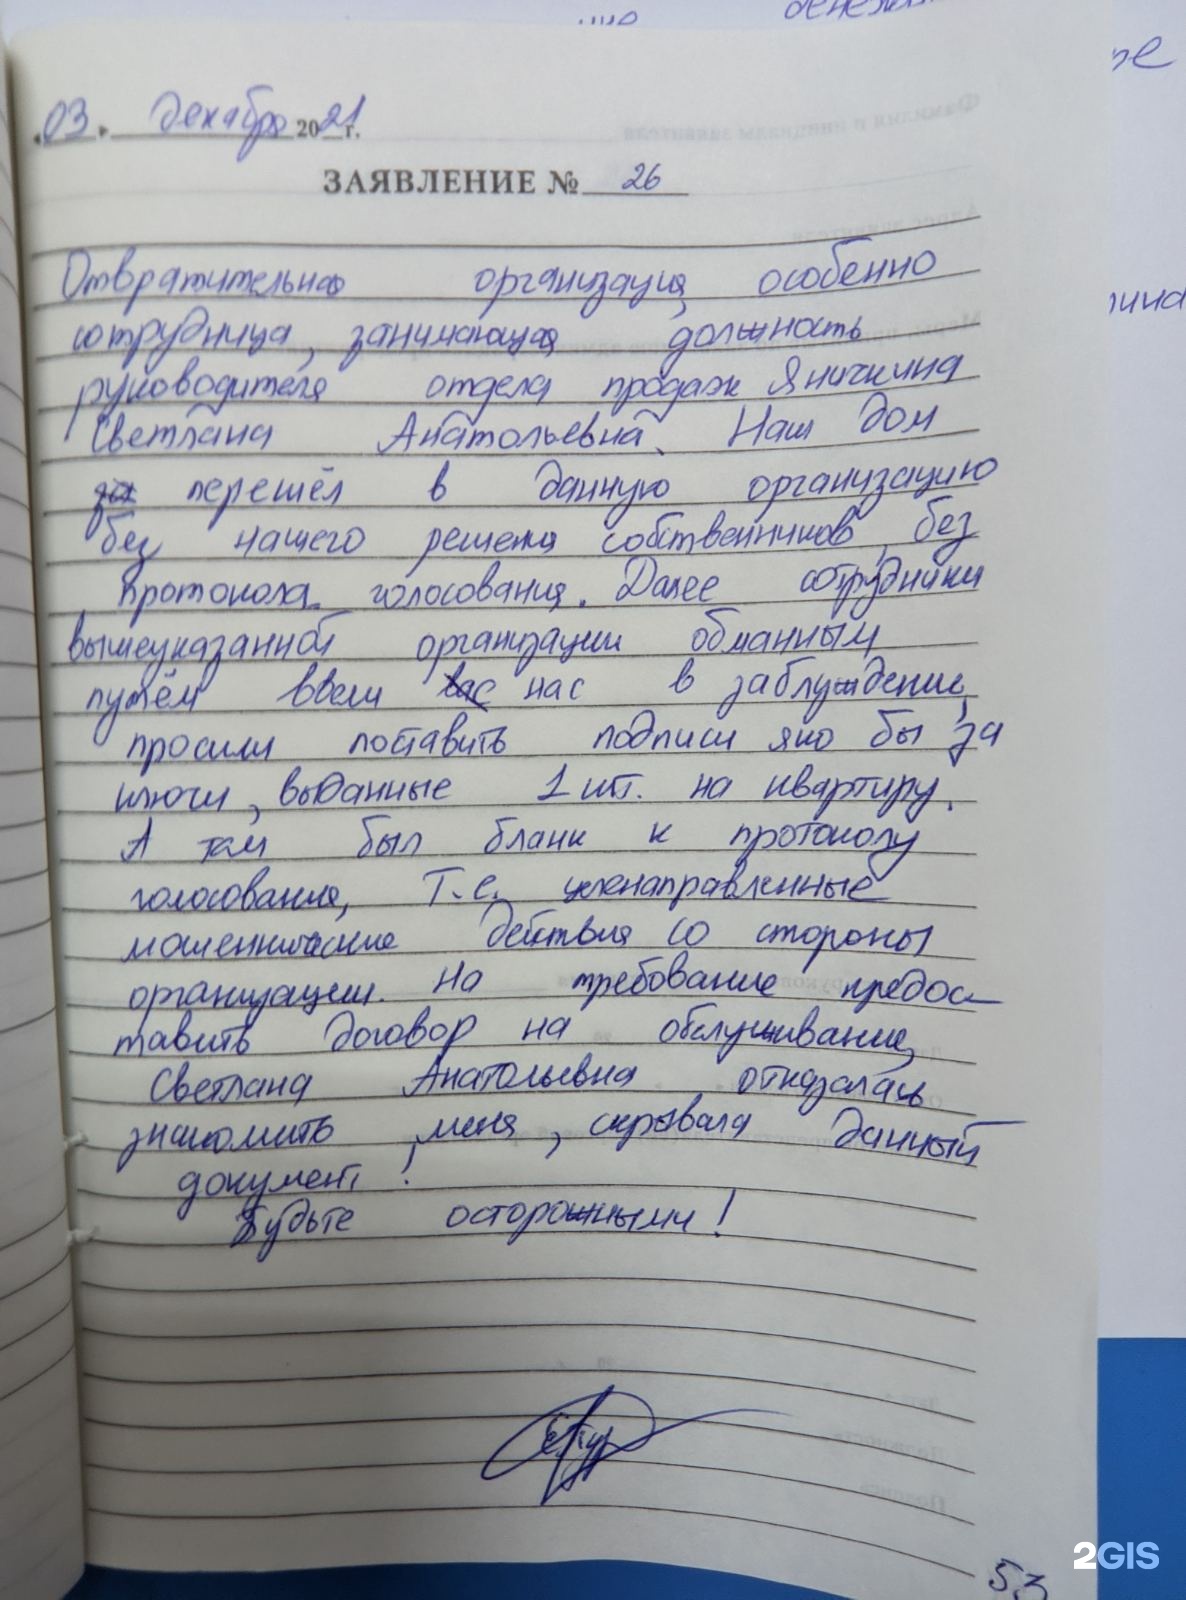 «03» декабря 2021 г.
ЗАЯВЛЕНИЕ № 26
Отвратительная организация, особенно
сотрудница, занимающая должность
руководителя отдела продаж Яничкина
Светлана Анатольевна. Наш дом
перешёл в данную организацию
без нашего решения собственников, без
протокола голосования. Далее сотрудники
вышеуказанной организации обманным
путём ввели нас в заблуждение,
просили поставить подписи яко бы за
ключи, выданные 1 шт. на квартиру.
А там был бланк к протоколу
голосования, т.е. целенаправленные
мошеннические действия со стороны
организации. На требование предос
тавить договор на обслуживание,
Светлана Анатольевна отказалась
знакомить меня, скрывала данный
документ!
Будьте осторожными!
53
2GIS